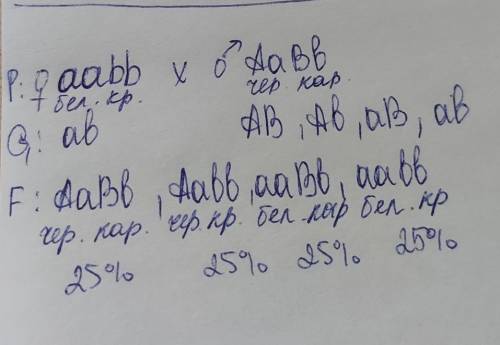 P: ♀ aabb x ♂ AaBb
бел. кр. чер. кар.
G: ab AB, Ab, aB, ab
F: AaBb, Aabb, aaBb, aabb
чер. кар. чер. кр. бел. кар бел. кр
25% 25% 25% 25%